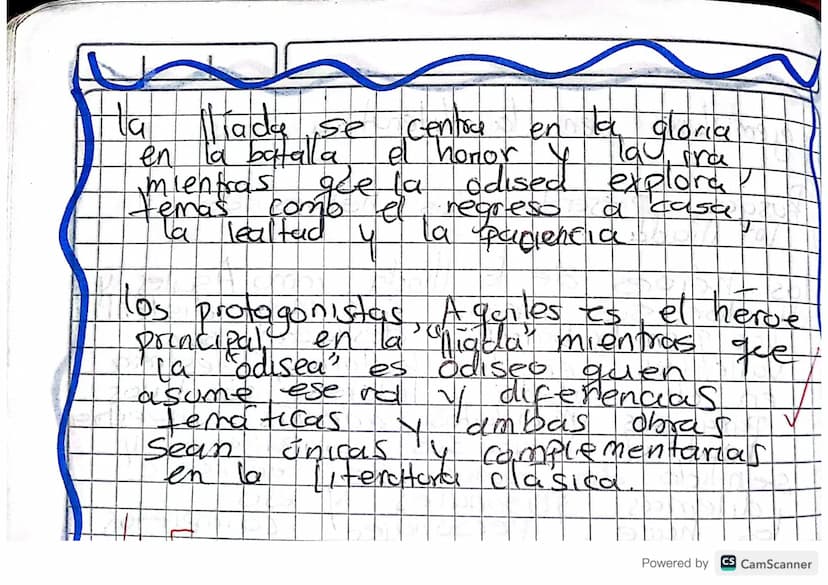 la Ilíada se centra en la gloria
en la batalla, el honor y la ira
mientras que la odised explora
temas como el regreso a casa,
la lealtad y la paciencia
los protagonistas, Aquiles es el héroe
principal en la "Ilíada" mientras que
la "odisea" es odiseo quen
asume ese rol y diferencias
temáticas y ambas obras
sean únicas y complementarias
en la literatura clásica.
Powered by CS CamScanner